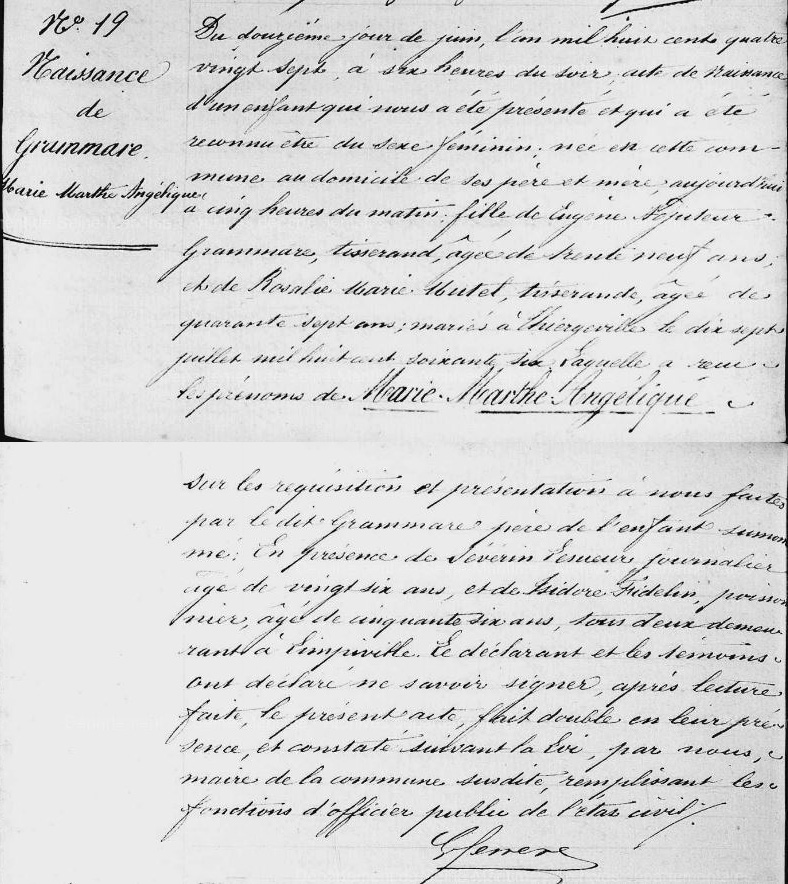 No. 19
Naissance
de
Grammare.
Marie Marthe Angélique
Du douzième jour de juin, l'an mil huit cent quatre
vingt sept, à six heures du soir, acte de naissance
d'un enfant qui nous a été présenté et qui a été
reconnu être du sexe féminin; née en cette com-
mune au domicile de ses père et mère, aujourd'hui
à cinq heures du matin; fille de Eugène
Grammare, tisserand, âgé de trente neuf ans,
et de Rosalie Marie Mutel, tisserande, âgée de
quarante sept ans; mariés à Thiergeville le dix sept
juillet mil huit cent soixante six. Laquelle a reçu
les prénoms de Marie-Marthe-Angélique
sur les requisition et présentation à nous faites
par le dit Grammare père de l'enfant surnom
mé; En présence de Séverin journalier
âgé de vingt six ans, et de Isidore Fidelin, poisson
nier, âgé de cinquante six ans, tous deux demeu
rant à Limpiville. Le déclarant et les témoins
ont déclaré ne savoir signer, après lecture
faite, le présent acte, fait double en leur pré-
sence, et constaté suivant la Loi, par nous,
maire de la commune susdite, remplissant les
fonctions d'officier public de l'état civil/.